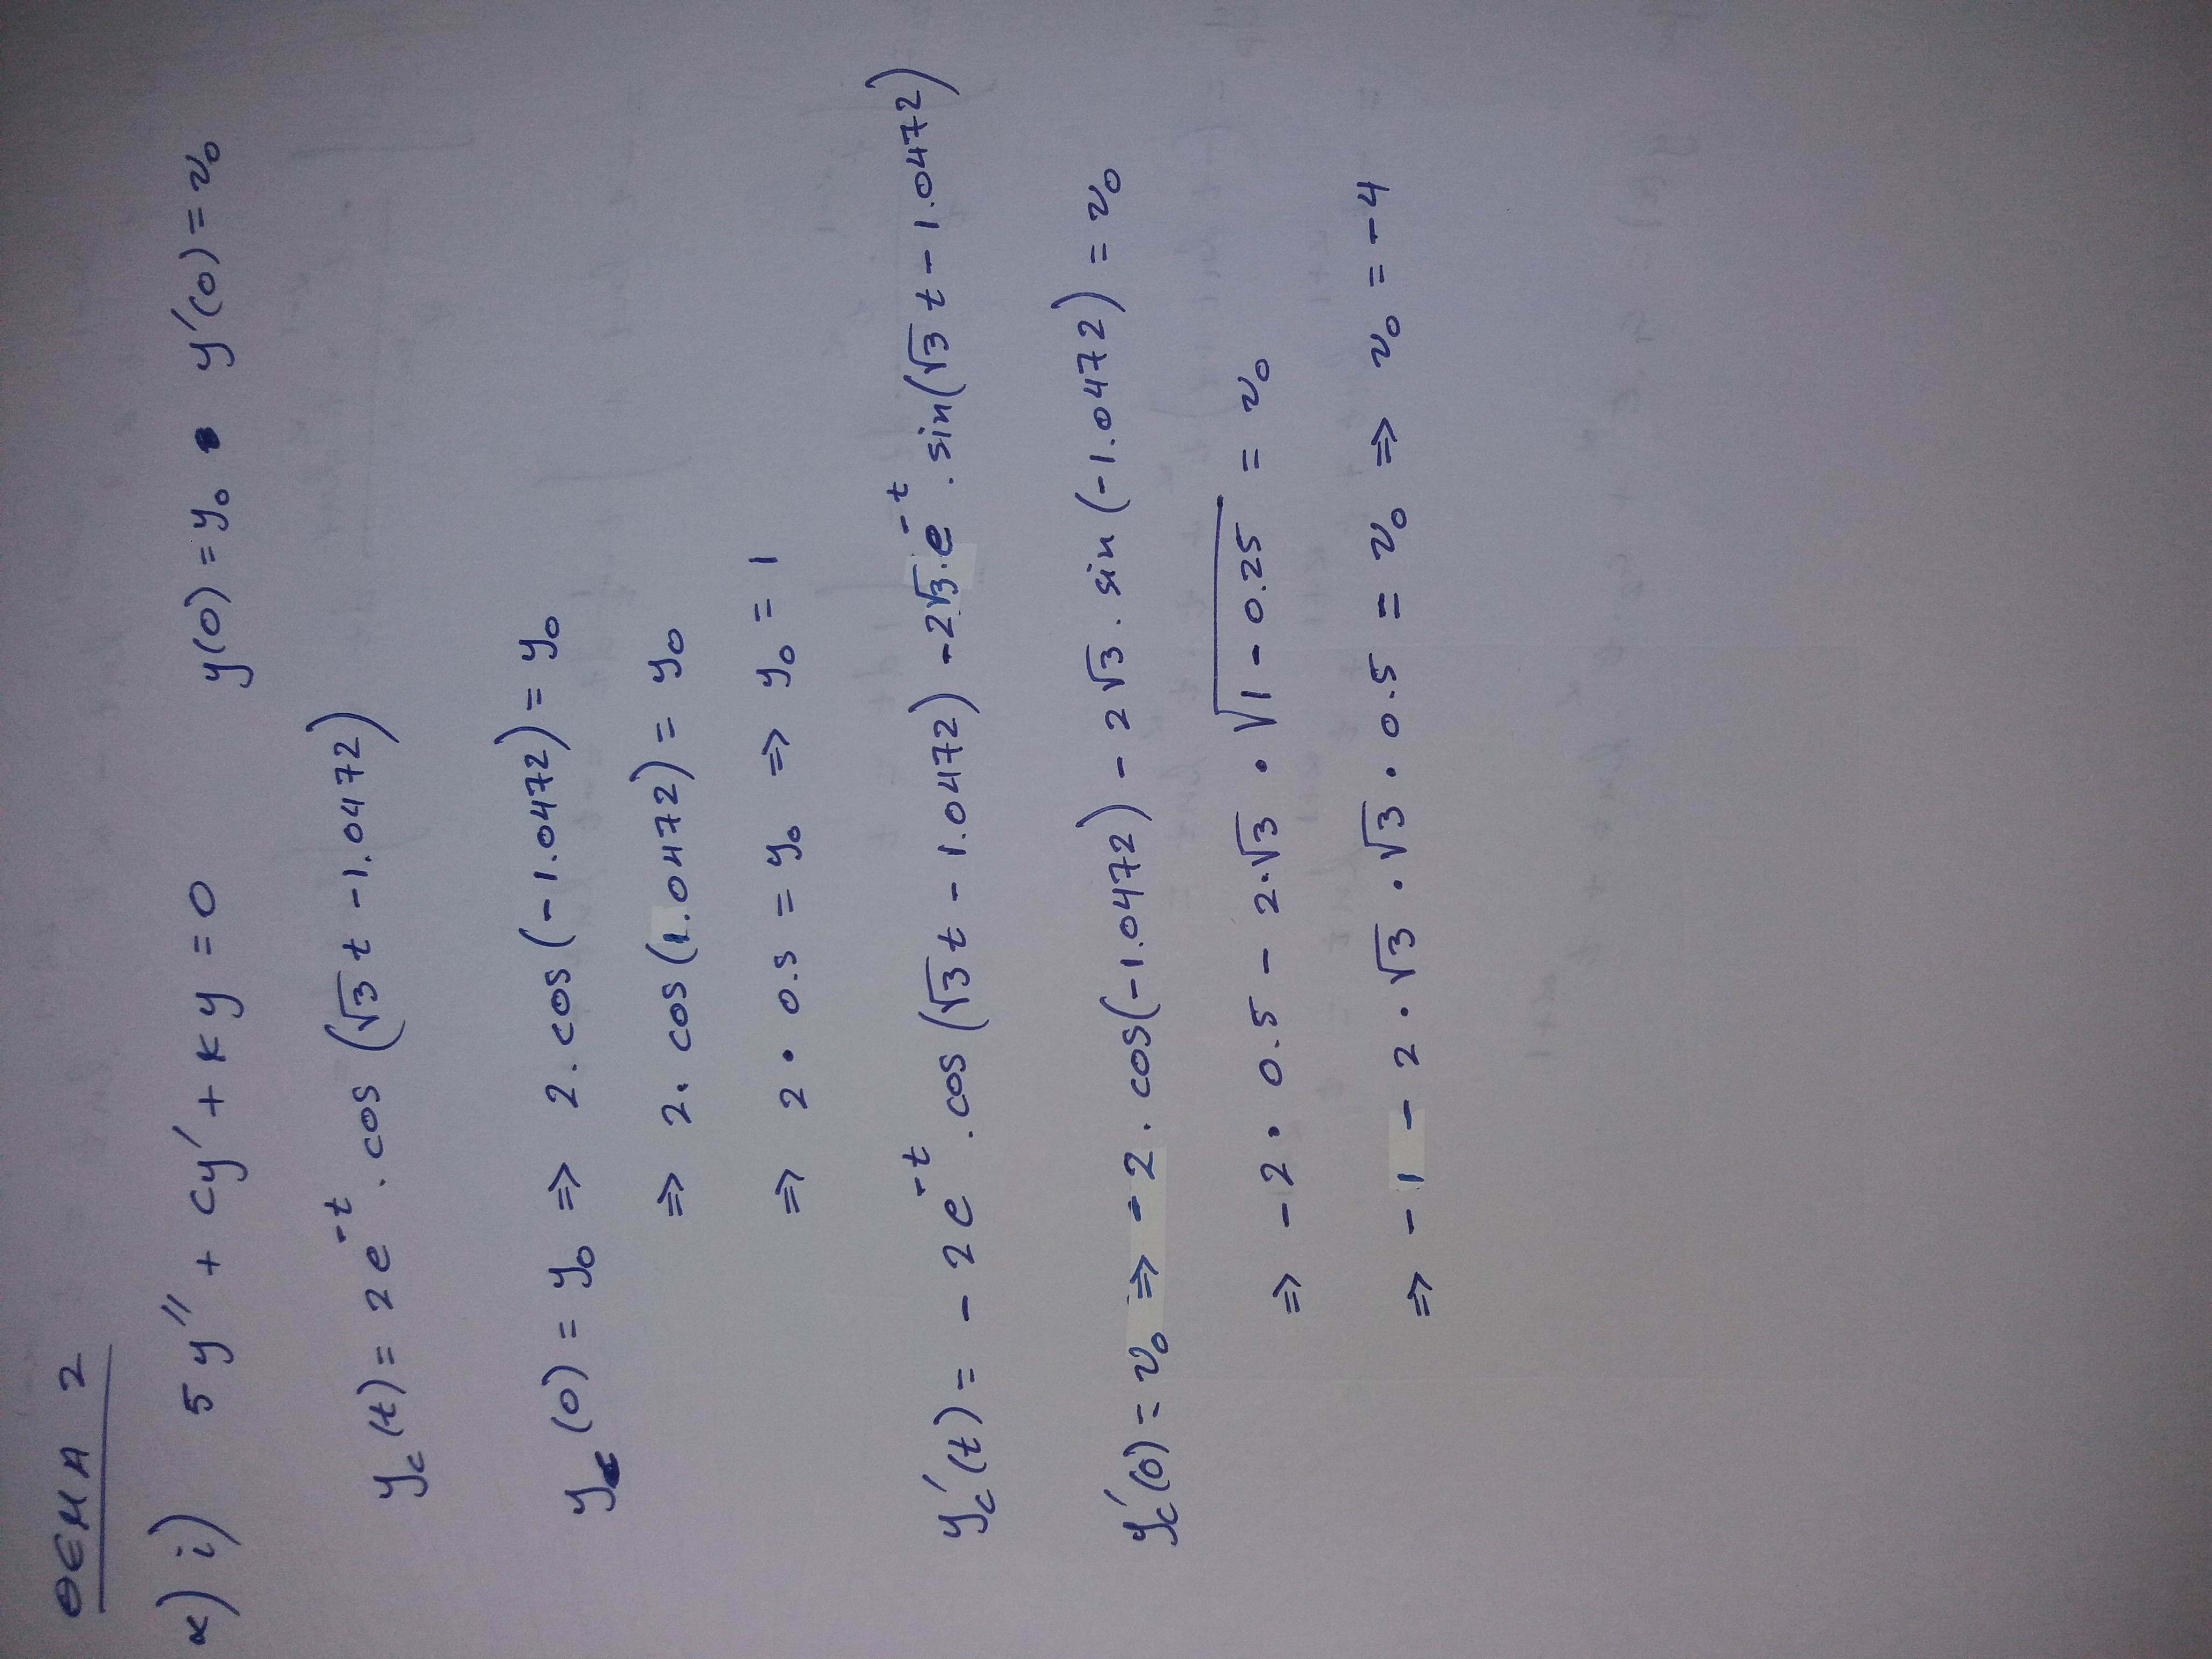 ΘΕΜΑ 2
α) i) 5y'' + cy' + κy = 0 y(0) = y₀ y'(0) = v₀
y_c(t) = 2e^{-t} · cos(√3 t - 1.0472)
y_c(0) = y₀ ⇒ 2 · cos(-1.0472) = y₀
⇒ 2 · cos(1.0472) = y₀
⇒ 2 · 0.5 = y₀ ⇒ y₀ = 1
y_c'(t) = - 2e^{-t} · cos(√3 t - 1.0472) - 2√3 · e^{-t} · sin(√3 t - 1.0472)
y_c'(0) = v₀ ⇒ -2 · cos(-1.0472) - 2√3 · sin(-1.0472) = v₀
⇒ -2 · 0.5 - 2·√3 · √(1 - 0.25) = v₀
⇒ -1 - 2 · √3 · √3 · 0.5 = v₀ ⇒ v₀ = -4